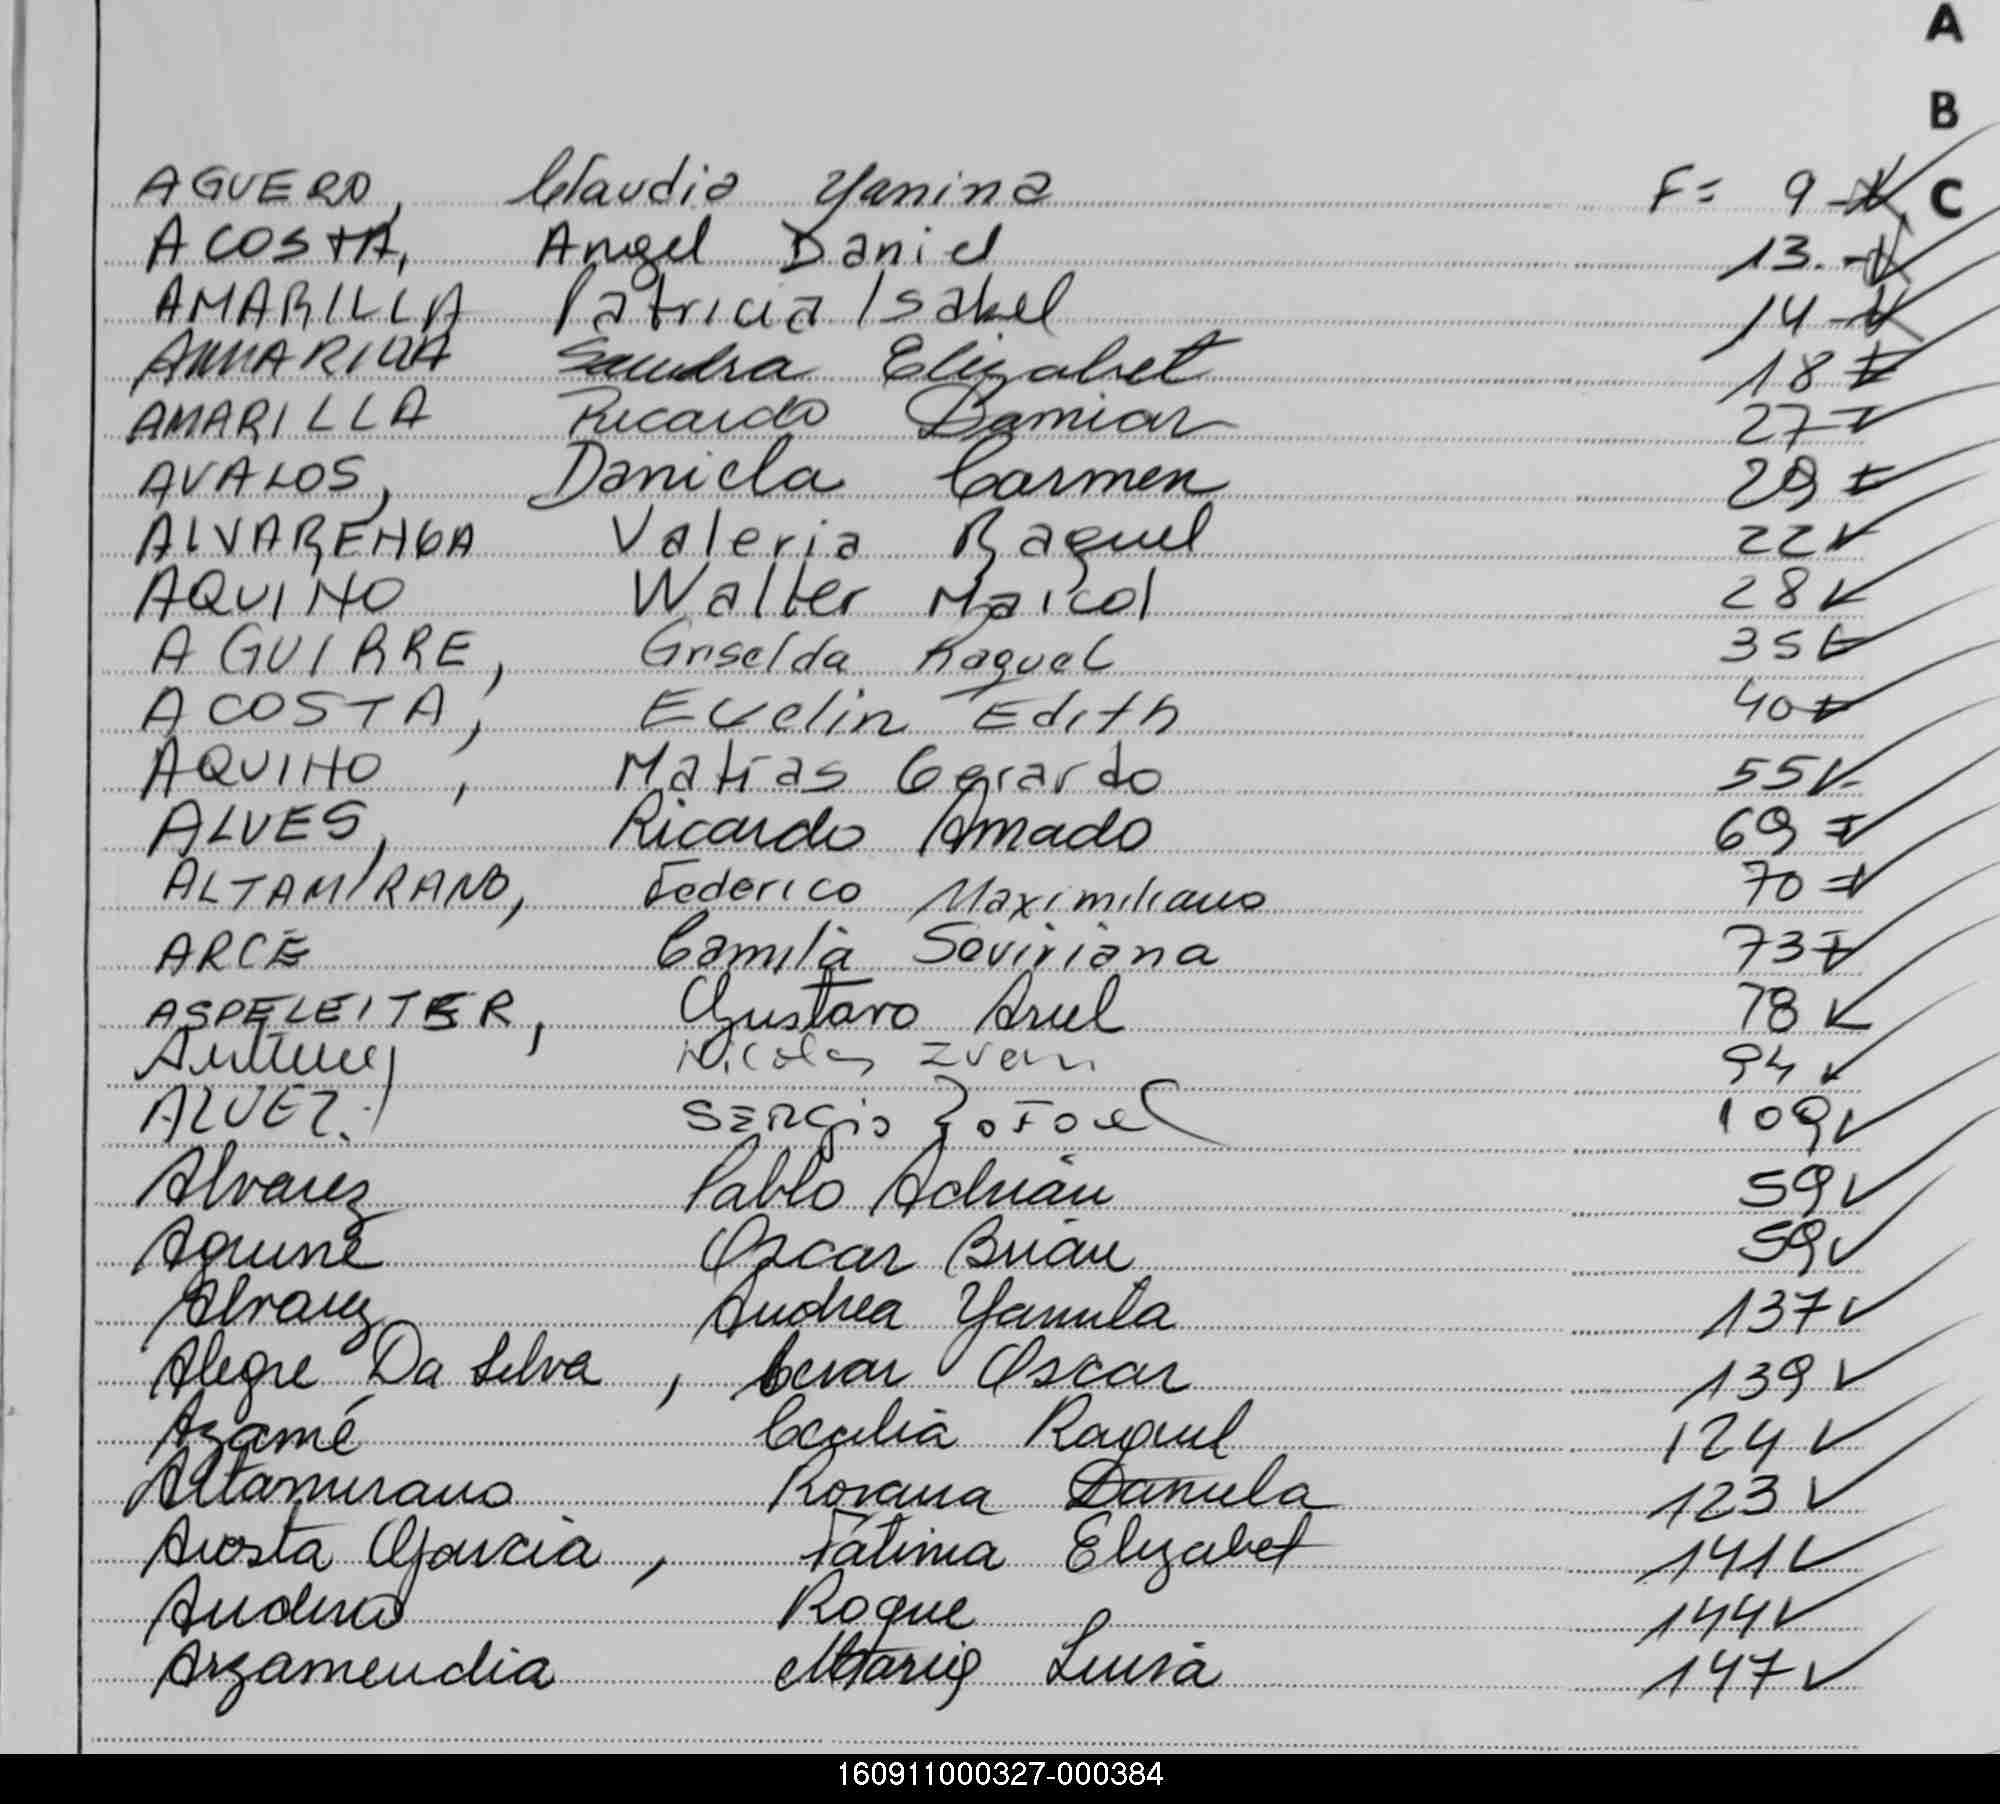 A
B
C
AGUERO, Claudia Yanina F= 9
ACOSTA, Angel Daniel 13.
AMARILLA Patricia Isabel 14
AMARILLA Sandra Elizabet 18
AMARILLA Ricardo Damian 27
AVALOS, Daniela Carmen 29
ALVARENGA Valeria Raquel 22
AQUINO Walter Maicol 28
AGUIRRE, Griselda Raquel 35
ACOSTA, Evelin Edith 40
AQUINO, Matías Gerardo 55
ALVES, Ricardo Amado 69
ALTAMIRANO, Federico Maximiliano 70
ARCE Camila Saviriana 73
ASPELEITER, Gustavo Ariel 78
Nicolas Ivan 94
ALVEZ. SERGIO Rafael 109
Alvarez Pablo Adrián 59
Aguirre Oscar Brian 59
Alvarez Andrea Yamila 137
Alegre Da Silva, Cesar Oscar 139
Azamé Cecilia Raquel 124
Altamirano Roxana Daniela 123
Acosta Garcia, Fátima Elizabet 141
Roque 144
Arzamendia Maria Luisa 147
160911000327-000384